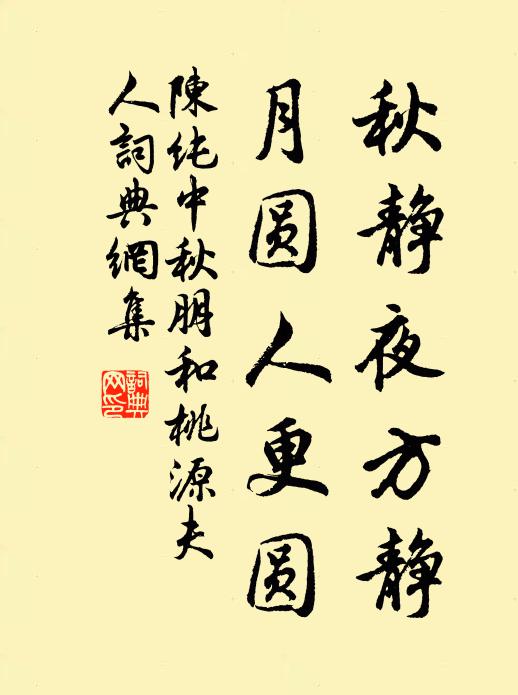 秋静夜方静
月圆人更圆
陳純中秋朋和桃源夫
人詞典網集
詞典
网印